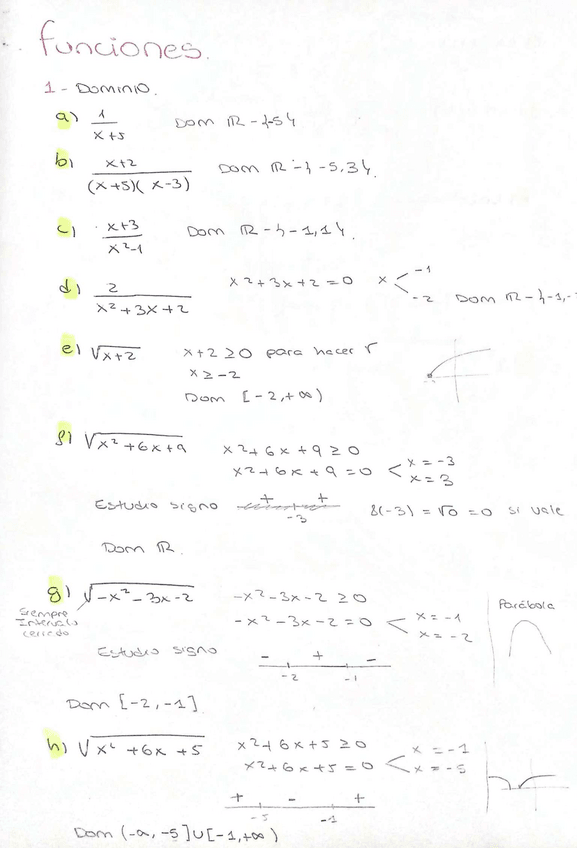 funciones.
1 - Dominio.
a) 1/(x+5) Dom ℝ - {-5}
b) (x+2)/((x+5)(x-3)) Dom ℝ - {-5,3}.
c) (x+3)/(x²-1) Dom ℝ - {-1,1}.
d) 2/(x²+3x+2) x²+3x+2=0 x < -1 -2 Dom ℝ - {-1,-
e) √(x+2) x+2 ≥0 para hacer √
x ≥ -2
Dom [-2,+∞)
f) √(x²+6x+9) x²+6x+9 ≥0
x²+6x+9 =0 < x=-3 x=3
Estudio signo + + -3 f(-3) = √0 =0 sí vale
Dom ℝ.
g) √(-x²-3x-2) -x²-3x-2 ≥0 Parábola
Siempre Intervalo cerrado
-x²-3x-2 =0 < x=-1 x=-2
Estudio signo - + - -2 -1
Dom [-2,-1]
h) √(x²+6x+5) x²+6x+5 ≥0
x²+6x+5 =0 < x=-1 x=-5
+ - + -5 -1
Dom (-∞,-5]∪[-1,+∞)